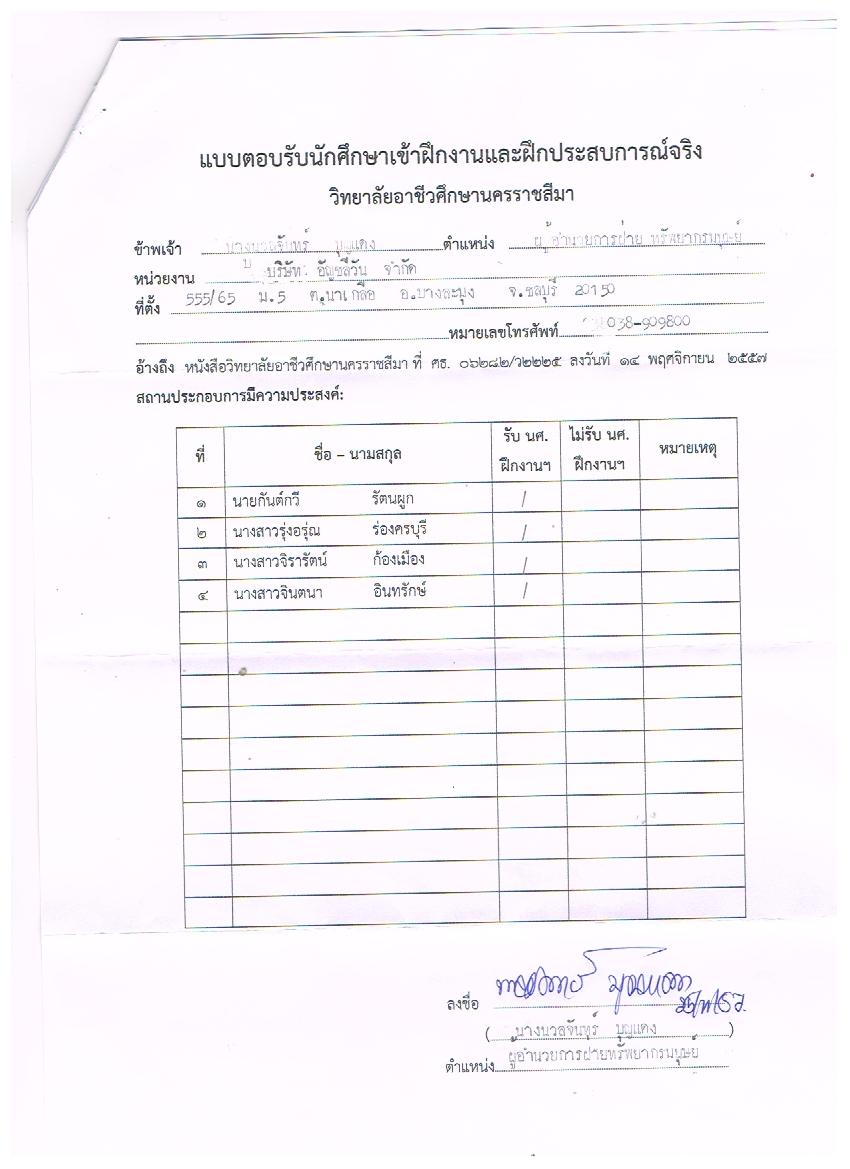 แบบตอบรับนักศึกษาเข้าฝึกงานและฝึกประสบการณ์จริง
วิทยาลัยอาชีวศึกษานครราชสีมา
ข้าพเจ้า นางนวลจันทร์ บุญแดง ตำแหน่ง ผู้อำนวยการฝ่าย ทรัพยากรมนุษย์
หน่วยงาน บริษัท อัญชลีวัน จำกัด
ที่ตั้ง 555/65 ม.5 ต.นาเกลือ อ.บางละมุง จ.ชลบุรี 20150
หมายเลขโทรศัพท์ 038-909800
อ้างถึง หนังสือวิทยาลัยอาชีวศึกษานครราชสีมา ที่ ศธ. ๐๖๒๘๒/ว๒๒๒๕ ลงวันที่ ๑๔ พฤศจิกายน ๒๕๕๗
สถานประกอบการมีความประสงค์:
ที่ ชื่อ – นามสกุล รับ นศ. ฝึกงานฯ ไม่รับ นศ. ฝึกงานฯ หมายเหตุ
๑ นายกันต์กวี รัตนผูก /
๒ นางสาวรุ่งอรุ่ณ ร่องครบุรี /
๓ นางสาวจิรารัตน์ ก้องเมือง /
๔ นางสาวจินตนา อินทรักษ์ /
ลงชื่อ
( นางนวลจันทร์ บุญแดง )
ตำแหน่ง ผู้อำนวยการฝ่ายทรัพยากรมนุษย์